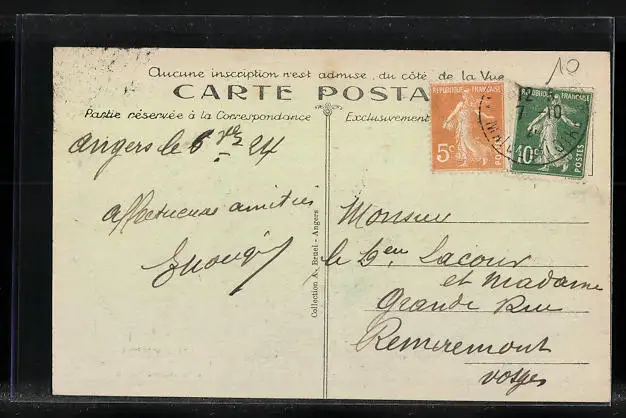 10
Aucune inscription n'est admise du côté de la Vue
CARTE POSTA
Partie réservée à la Correspondance
Exclusivement
RÉPUBLIQUE FRANÇAISE
5c
POSTES
FRANÇAISE
10c
POSTES
12
7 10
Angers le 6 24
Affectueuse amitiés
Collection A. Bruel - Angers
Monsieur
le Lacour
et Madame
Grande Rue
Remiremont
Vosges